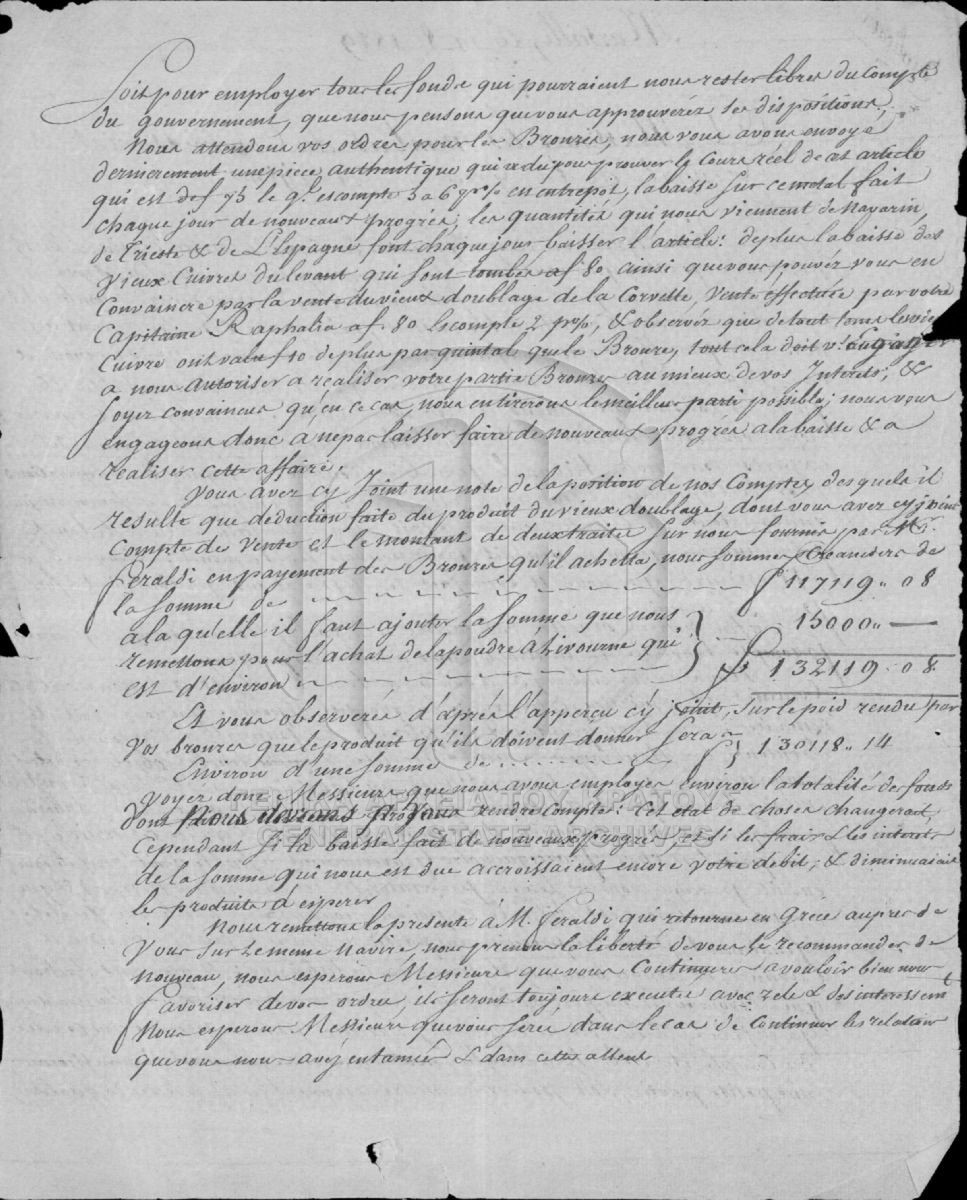 Soit pour employer tous les fonds qui pourraient nous rester libres du Compte
du gouvernement, que nous pensons que vous approuverez ses dispositions.
Nous attendons vos ordres pour les Bronzes, nous vous avons envoyé
dernierement une piece authentique qui a du vous prouver le Cours réel de cet article
qui est de f 75 le q.l escompte 5 a 6 pr% en entrepot, la baisse sur ce metal fait
chaque jour de nouveaux progrès, les quantités qui nous viennent de Navarin,
de Trieste & de L'Espagne font chaque jour baisser l'article: de plus la baisse des
Vieux Cuivres du levant qui sont tombés a f 80 ainsi que vous pouvez vous en
Convaincre par la vente du vieux doublage de la Corvette, Vente effectuée par votre
Capitaine Raphalia a f. 80 Escompte 2 pr%, & observéz que de tout tems les vieux
Cuivre ont valu f 10 de plus par quintal que le Bronze, tout cela doit v. engager
a nous autoriser a réaliser votre partie Bronzes au mieux de vos Interets; &
soyez convaincus qu'en ce cas, nous en tirerons le meilleur parti possible; nous vous
engageons donc a ne pas laisser faire de nouveaux progrès a la baisse & a
réaliser cette affaire.
Vous avez cy Joint une note de la position de nos Comptes, des quels il
resulte que deduction faite du produit du vieux doublage, dont vous avez cy joint
Compte de Vente et le montant de deux traites sur nous fournies par M.
Feraldi en payement des Bronzes qu'il acheta, nous sommes Creanciers de
la somme de f 117119 " 08
a la qu'elle il faut ajouter la somme que nous 15000 " —
remettons pour l'achat de la poudre à Livourne qui
est d'environ f 132119 " 08
Et vous observerés d'après l'apperçu cy joint, sur le poid rendu par
vos bronzes que le produit qu'ils doivent donner sera
Environ d'une somme de f 130118 " 14
Voyez donc Messieurs que nous avons employés environ la totalité des fonds
dont nous devrions vous rendre Compte: Cet etat de choses changerait,
Cependant si la baisse fait de nouveaux progrès, et si les frais & les interets
de la somme qui nous est due accroissaient encore votre debit, & diminuaient
les produits à esperer
Nous remettons la présente à M. Feraldi qui retourne en Grèce aupres de
vous sur le meme navire, nous prenons la liberté de vous le recommander de
nouveau, nous esperons Messieurs que vous Continuerés a vouloir bien nous
favoriser de vos ordres, ils seront toujours executés avec zele & desinteressemt
Nous esperons Messieurs que vous serés dans le cas de continuer les relations
que vous nous avéz entamées & dans cette attente